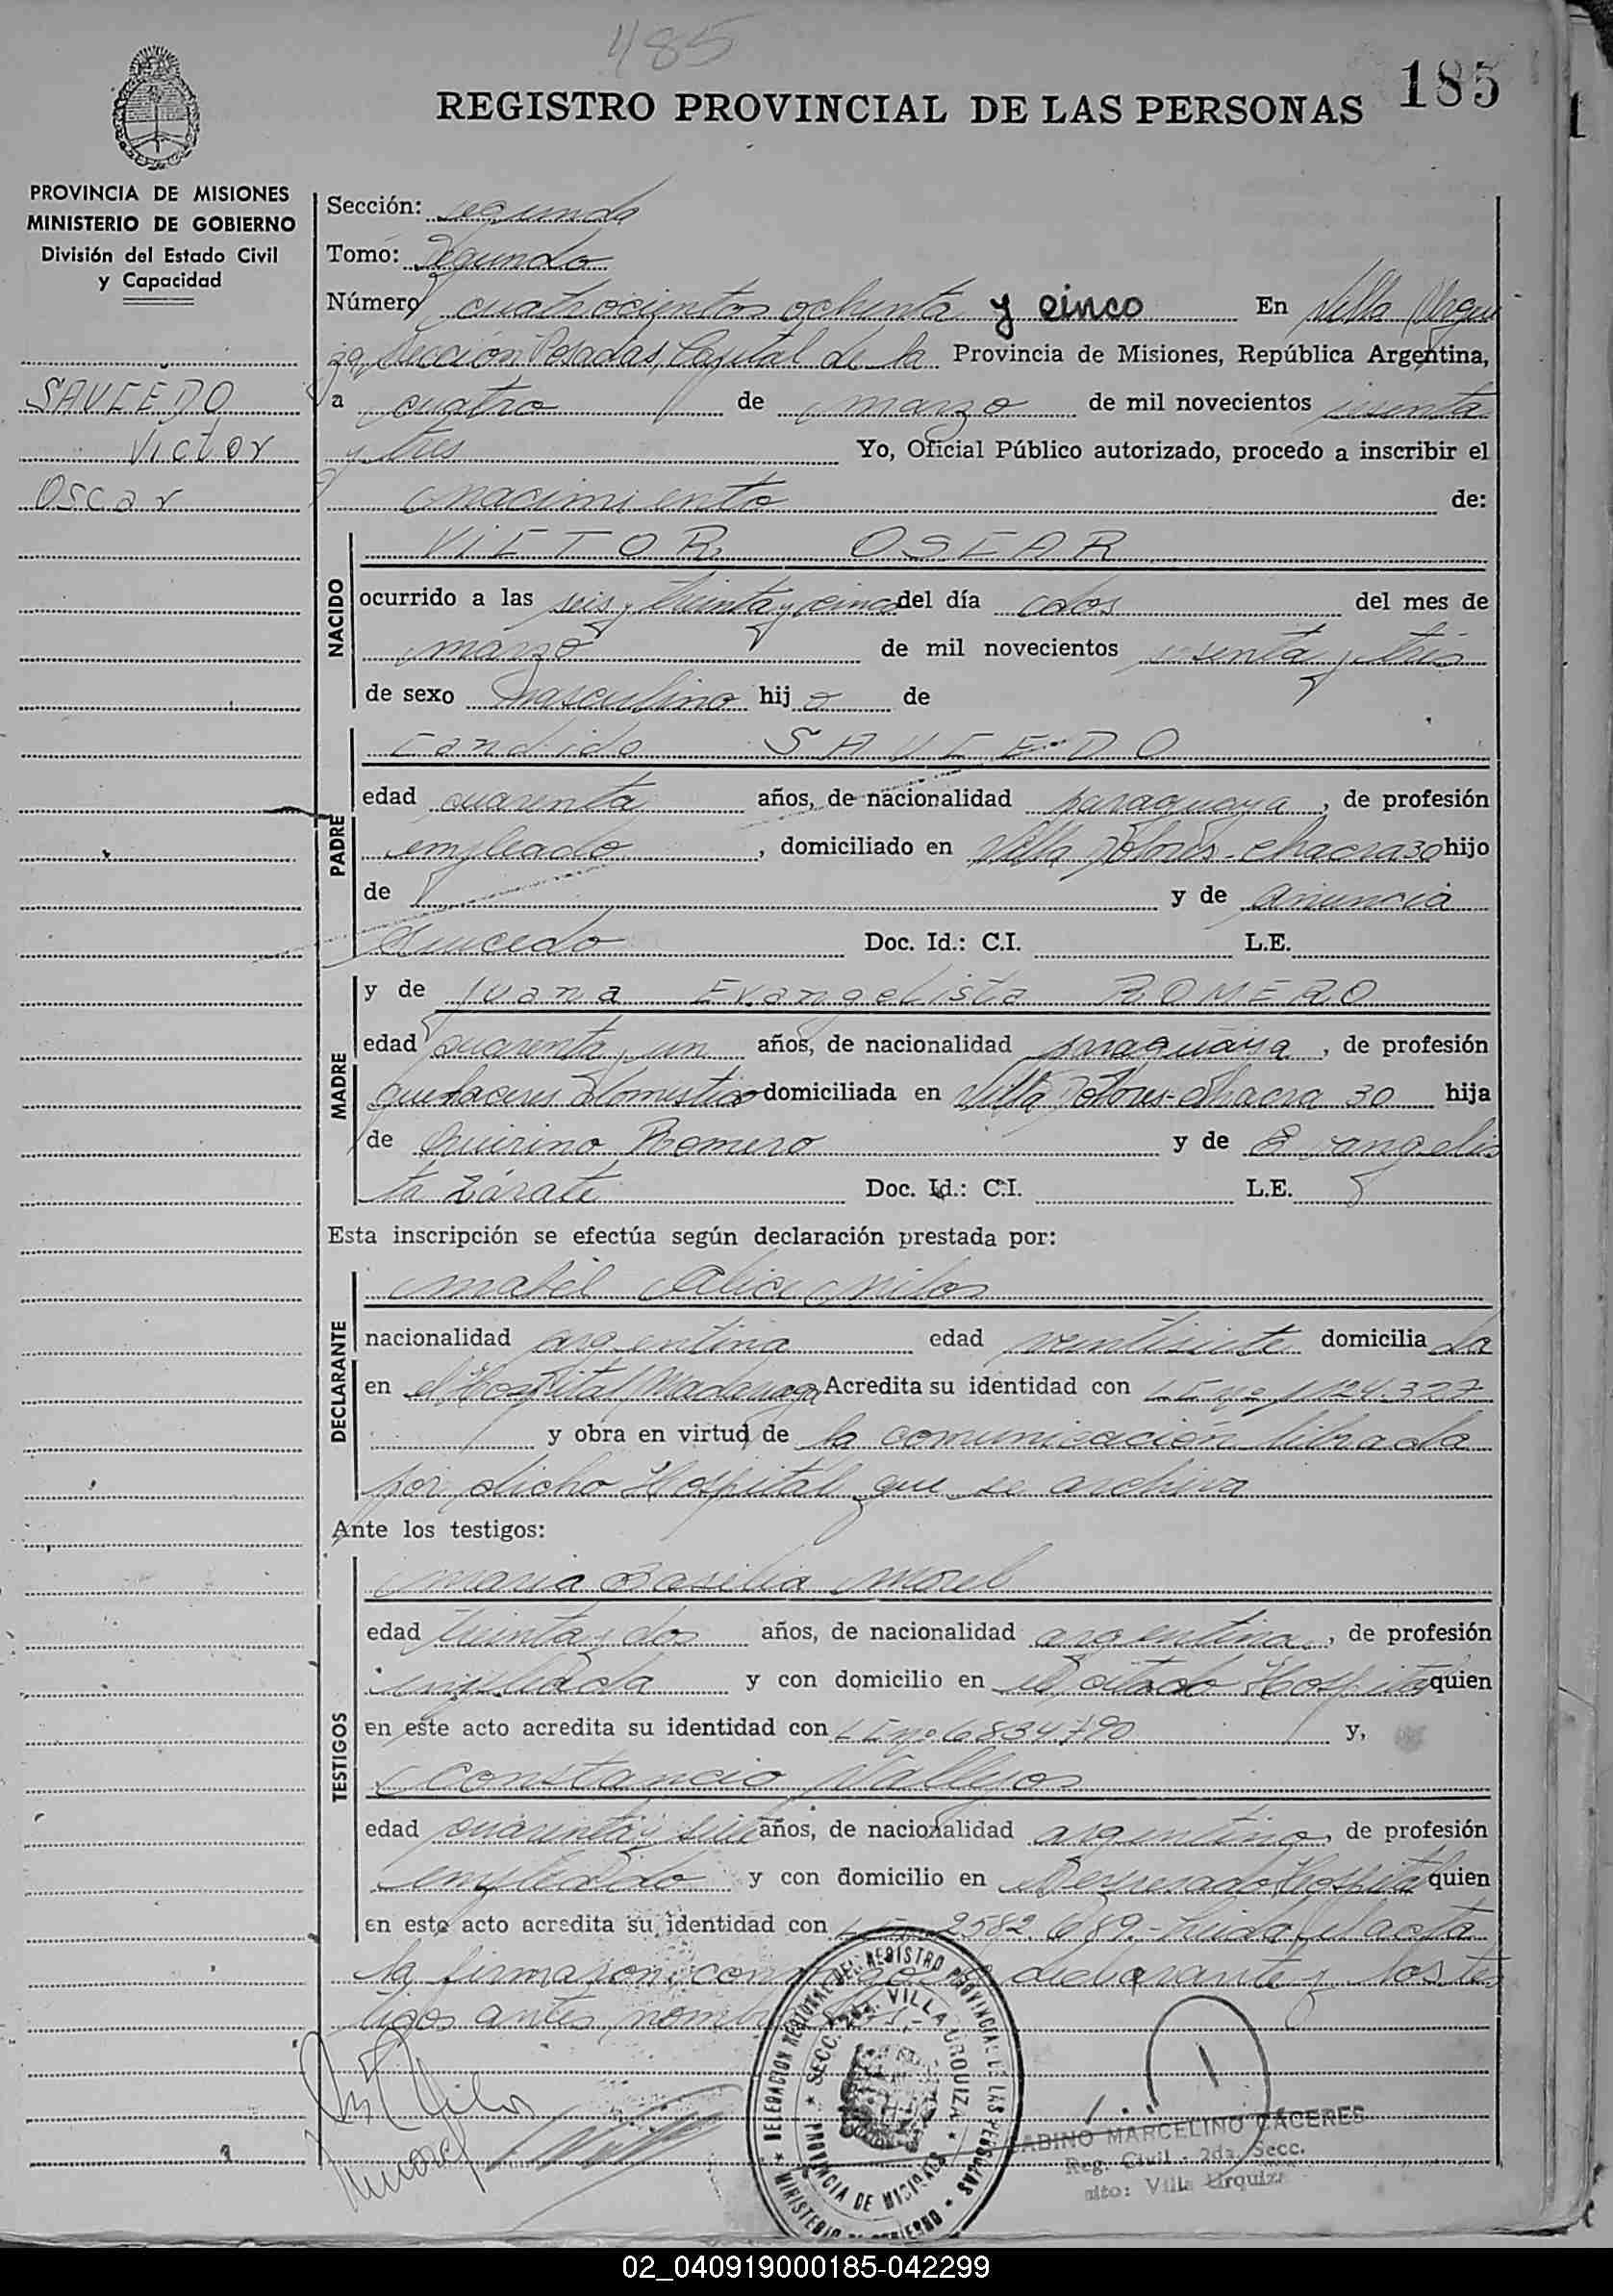 485
185
REGISTRO PROVINCIAL DE LAS PERSONAS
PROVINCIA DE MISIONES
MINISTERIO DE GOBIERNO
División del Estado Civil
y Capacidad
SAUCEDO
Victor
Oscar
Sección: segunda
Tomo: Segundo
Número cuatrocientos ochenta y cinco En Villa Urqui
za, Sección Posadas, Capital de la Provincia de Misiones, República Argentina,
a cuatro de marzo de mil novecientos sesenta
y tres Yo, Oficial Público autorizado, procedo a inscribir el
nacimiento de:
NACIDO
VICTOR OSCAR
ocurrido a las seis y treinta y cinco del día dos del mes de
marzo de mil novecientos sesenta y tres
de sexo masculino hijo de
PADRE
Candido SAUCEDO
edad cuarenta años, de nacionalidad paraguaya, de profesión
empleado, domiciliado en Villa Dolores - chacra 30 hijo
de y de Anuncia
Saucedo Doc. Id.: C.I. L.E.
MADRE
y de Juana Evangelista ROMERO
edad cuarenta y un años, de nacionalidad paraguaya, de profesión
quehaceres domestico domiciliada en Villa Dolores - Chacra 30 hija
de Quirino Romero y de Evangelis
ta Zárate Doc. Id.: C.I. L.E.
Esta inscripción se efectúa según declaración prestada por:
DECLARANTE
Mabel Alice Milos
nacionalidad argentina edad veintisiete domiciliada
en el Hospital Madariaga Acredita su identidad con L E nº 1124.327
y obra en virtud de la comunicación librada
por dicho Hospital que se archiva
Ante los testigos:
TESTIGOS
Maria Basilia Morel
edad treinta y dos años, de nacionalidad argentina, de profesión
empleada y con domicilio en el citado Hospital quien
en este acto acredita su identidad con L E nº 6834.790 y,
Constancio Vallejos
edad cuarenta y siete años, de nacionalidad argentino, de profesión
empleado y con domicilio en el expresado Hospital quien
en este acto acredita su identidad con 2582.689.- Leida el acta
la firmaron conmigo la declarante y los tes
tigos antes nombrados.-
DELEGACION REGIONAL DEL REGISTRO PROVINCIAL DE LAS PERSONAS
MINISTERIO DE GOBIERNO
SECC. 2da. VILLA URQUIZA
PROVINCIA DE MISIONES
MARCELINO CÁCERES
Reg. Civil - 2da. Secc.
Villa Urquiza
02_040919000185-042299